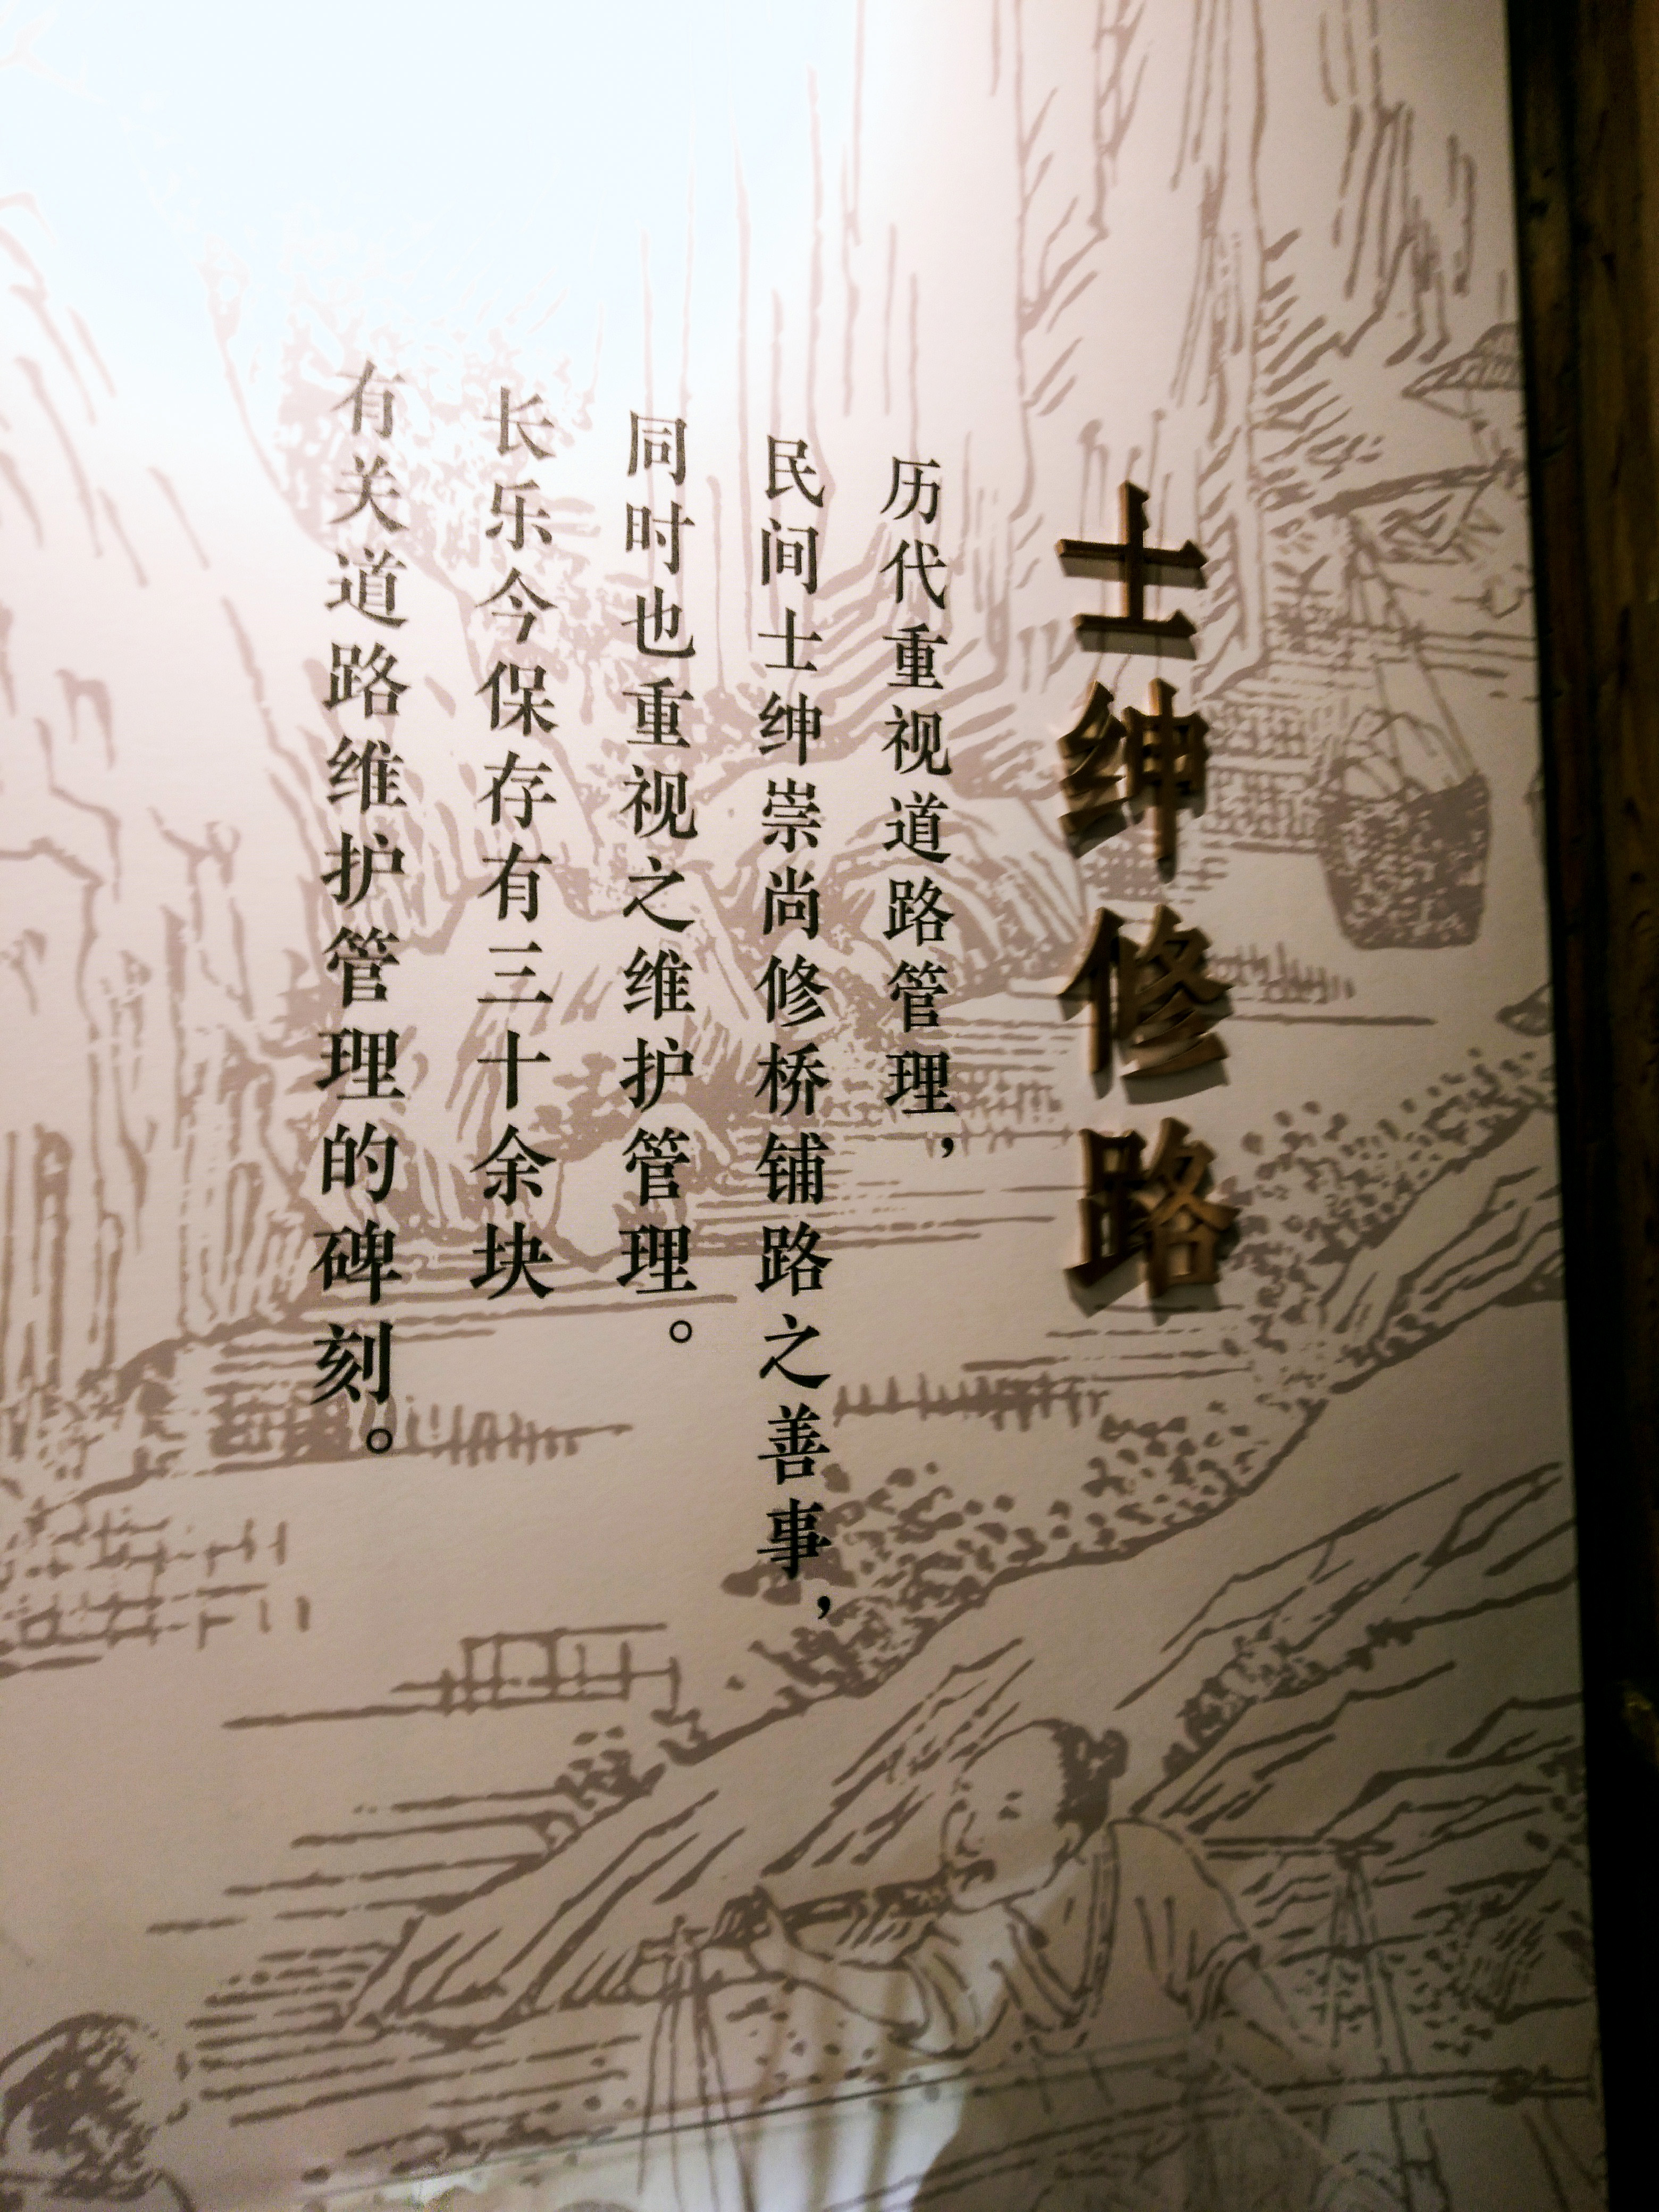 士绅修路
历代重视道路管理，
民间士绅崇尚修桥铺路之善事，
同时也重视之维护管理。
长乐今保存有三十余块
有关道路维护管理的碑刻。